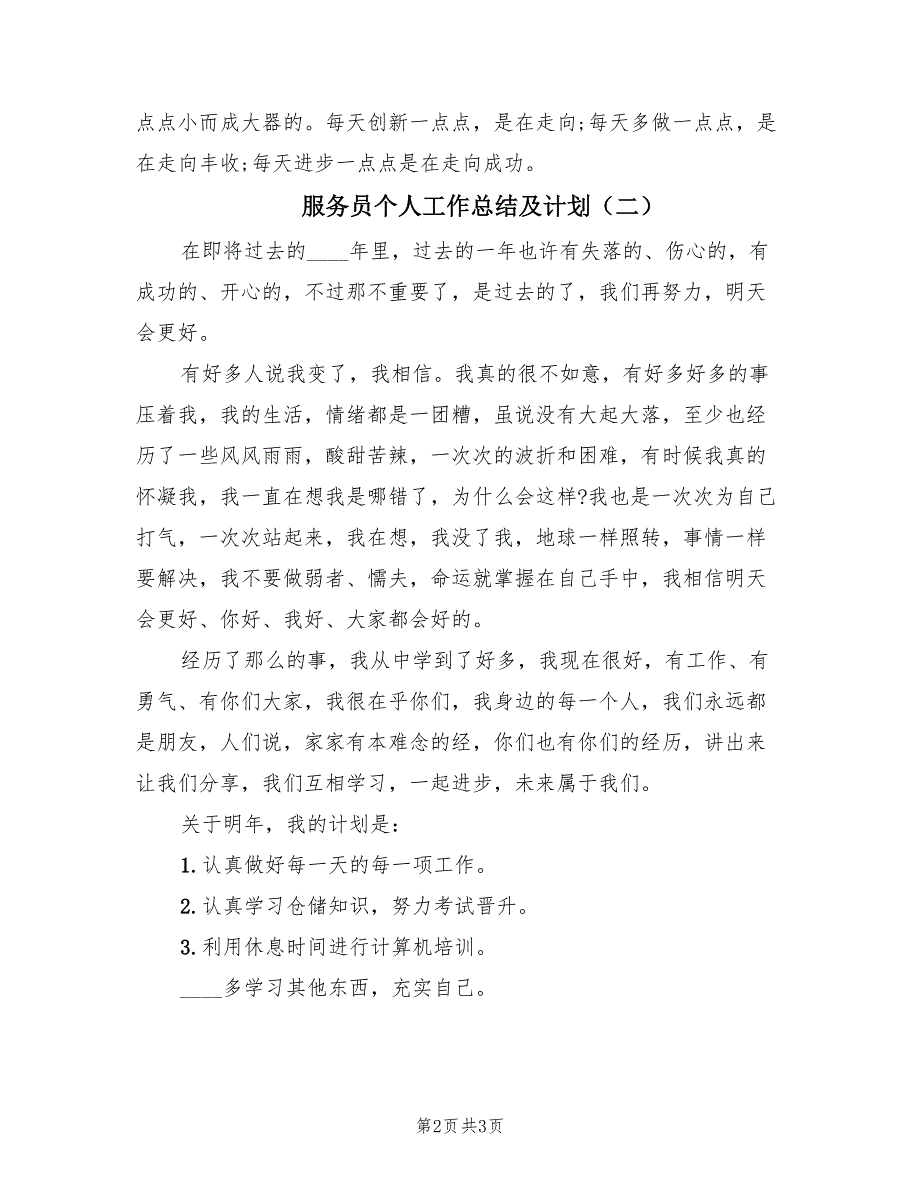 点点小而成大器的。每天创新一点点，是在走向;每天多做一点点，是
在走向丰收;每天进步一点点是在走向成功。
服务员个人工作总结及计划（二）
在即将过去的____年里，过去的一年也许有失落的、伤心的，有
成功的、开心的，不过那不重要了，是过去的了，我们再努力，明天
会更好。
有好多人说我变了，我相信。我真的很不如意，有好多好多的事
压着我，我的生活，情绪都是一团糟，虽说没有大起大落，至少也经
历了一些风风雨雨，酸甜苦辣，一次次的波折和困难，有时候我真的
怀凝我，我一直在想我是哪错了，为什么会这样?我也是一次次为自己
打气，一次次站起来，我在想，我没了我，地球一样照转，事情一样
要解决，我不要做弱者、懦夫，命运就掌握在自己手中，我相信明天
会更好、你好、我好、大家都会好的。
经历了那么的事，我从中学到了好多，我现在很好，有工作、有
勇气、有你们大家，我很在乎你们，我身边的每一个人，我们永远都
是朋友，人们说，家家有本难念的经，你们也有你们的经历，讲出来
让我们分享，我们互相学习，一起进步，未来属于我们。
关于明年，我的计划是：
1.认真做好每一天的每一项工作。
2.认真学习仓储知识，努力考试晋升。
3.利用休息时间进行计算机培训。
____多学习其他东西，充实自己。
第2页共3页